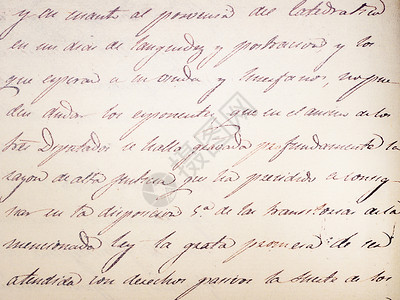 y en cuanto al porvenir del Catedratico
en sus dias de languidez y postracion y los
que esperan a su viuda y huerfanos, no pue-
den dudar los exponentes, que en el animo de los
tres Diputados se halla grabada profundamente la
razon de alta justicia que ha presidido a consig-
nar en la disposicion 5.ª de las transitorias de la
mencionada ley la grata promesa de ser
atendida con derechos pasivos la suerte de los